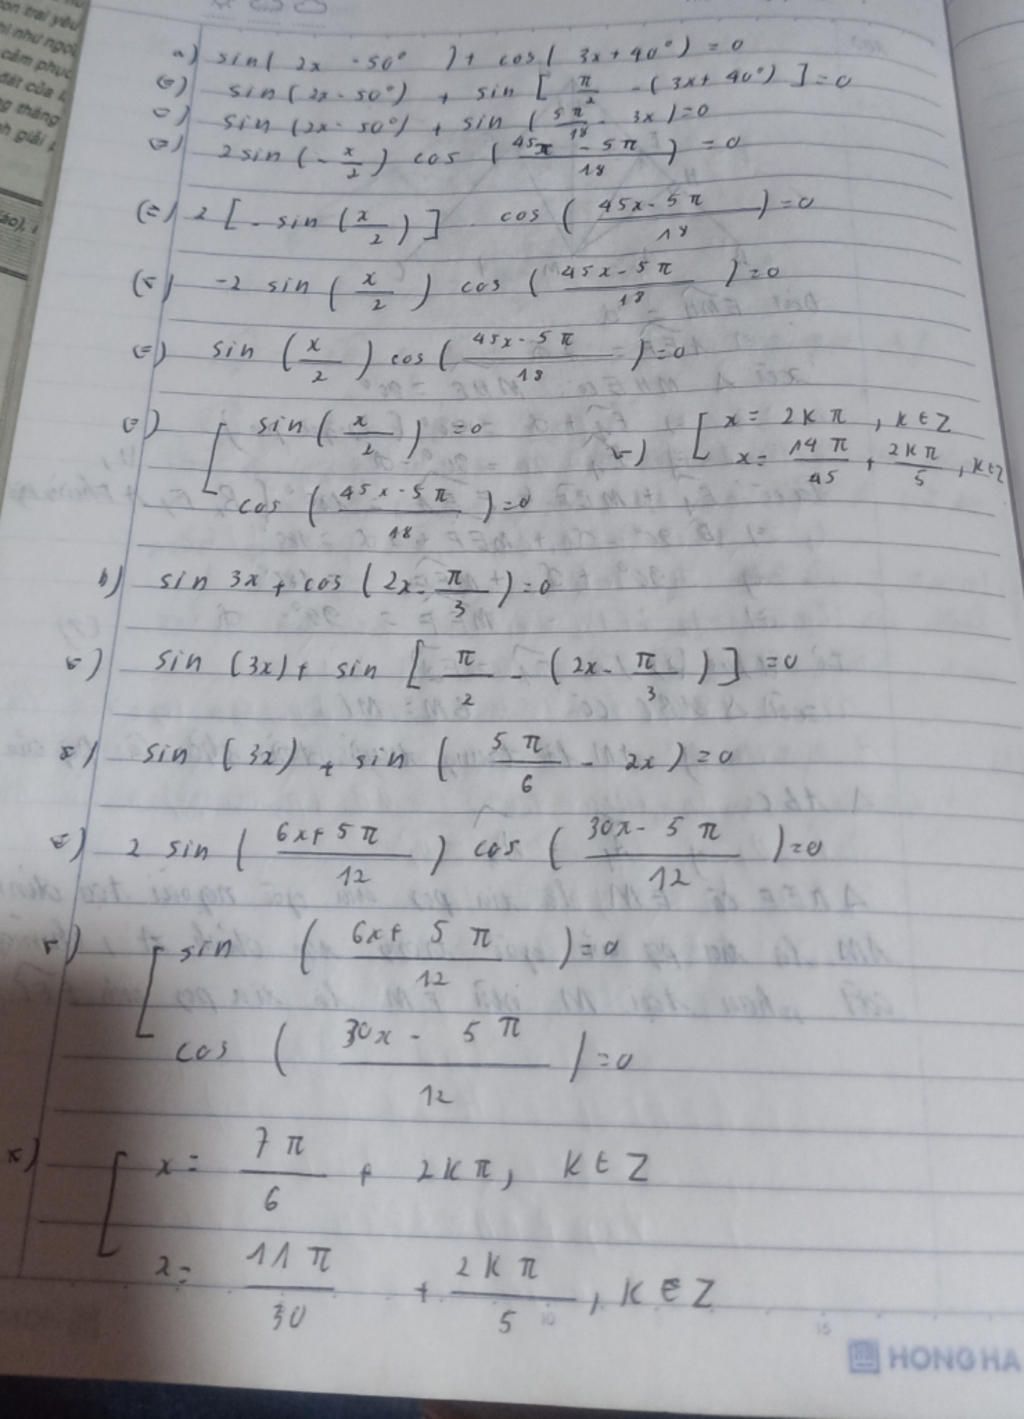 a) sin( 2x - 50° ) + cos( 3x + 40° ) = 0
(=) sin( 2x - 50°) + sin [ π/2 - (3x + 40°) ] = 0
(=) sin (2x - 50°) + sin ( 5π/18 - 3x ) = 0
(=) 2 sin ( - x/2 ) cos ( 45x - 5π / 18 ) = 0
(=) 2 [ - sin ( x/2 ) ] cos ( 45x - 5π / 18 ) = 0
(=) -2 sin ( x/2 ) cos ( 45x - 5π / 18 ) = 0
(=) sin ( x/2 ) cos ( 45x - 5π / 18 ) = 0
(=) [ sin ( x/2 ) = 0 (=) [ x = 2kπ , k ∈ Z
cos ( 45x - 5π / 18 ) = 0 x = 14π/45 + 2kπ/5 , k ∈ Z
b) sin 3x + cos ( 2x - π/3 ) = 0
(=) sin (3x) + sin [ π/2 - ( 2x - π/3 ) ] = 0
(=) sin (3x) + sin ( 5π/6 - 2x ) = 0
(=) 2 sin ( 6x + 5π / 12 ) cos ( 30x - 5π / 12 ) = 0
(=) [ sin ( 6x + 5π / 12 ) = 0
cos ( 30x - 5π / 12 ) = 0
(=) [ x = 7π/6 + 2kπ, k ∈ Z
x = 11π/30 + 2kπ/5 , k ∈ Z
HONG HA